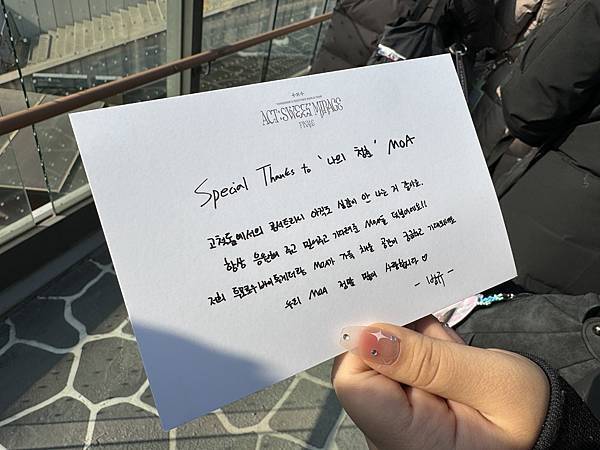 TOMORROW X TOGETHER WORLD TOUR
ACT : SWEET MIRAGE
FINALE
Special Thanks to '나의 청춘' MOA
고척돔에서의 콘서트라니 아직도 실감이 안 나는 거 같아요.
항상 응원해 주고 믿어주고 기다려준 MOA들 덕분이에요!!
저희 투모로우바이투게더랑 MOA가 가득 채울 공간이 궁금하고 기대돼요
우리 MOA 정말 많이 사랑합니다 ♡
- 범규 -